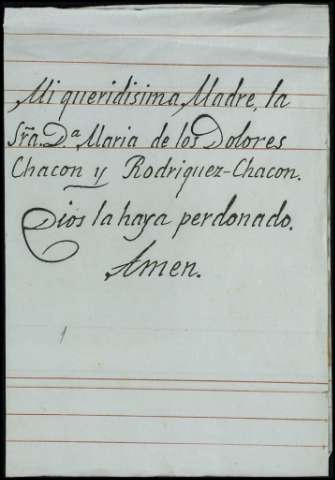 Mi queridisima Madre, la
Sr̃a. Dª Maria de los Dolores
Chacon y Rodriguez-Chacon.
Dios la haya perdonado.
Amen.
1